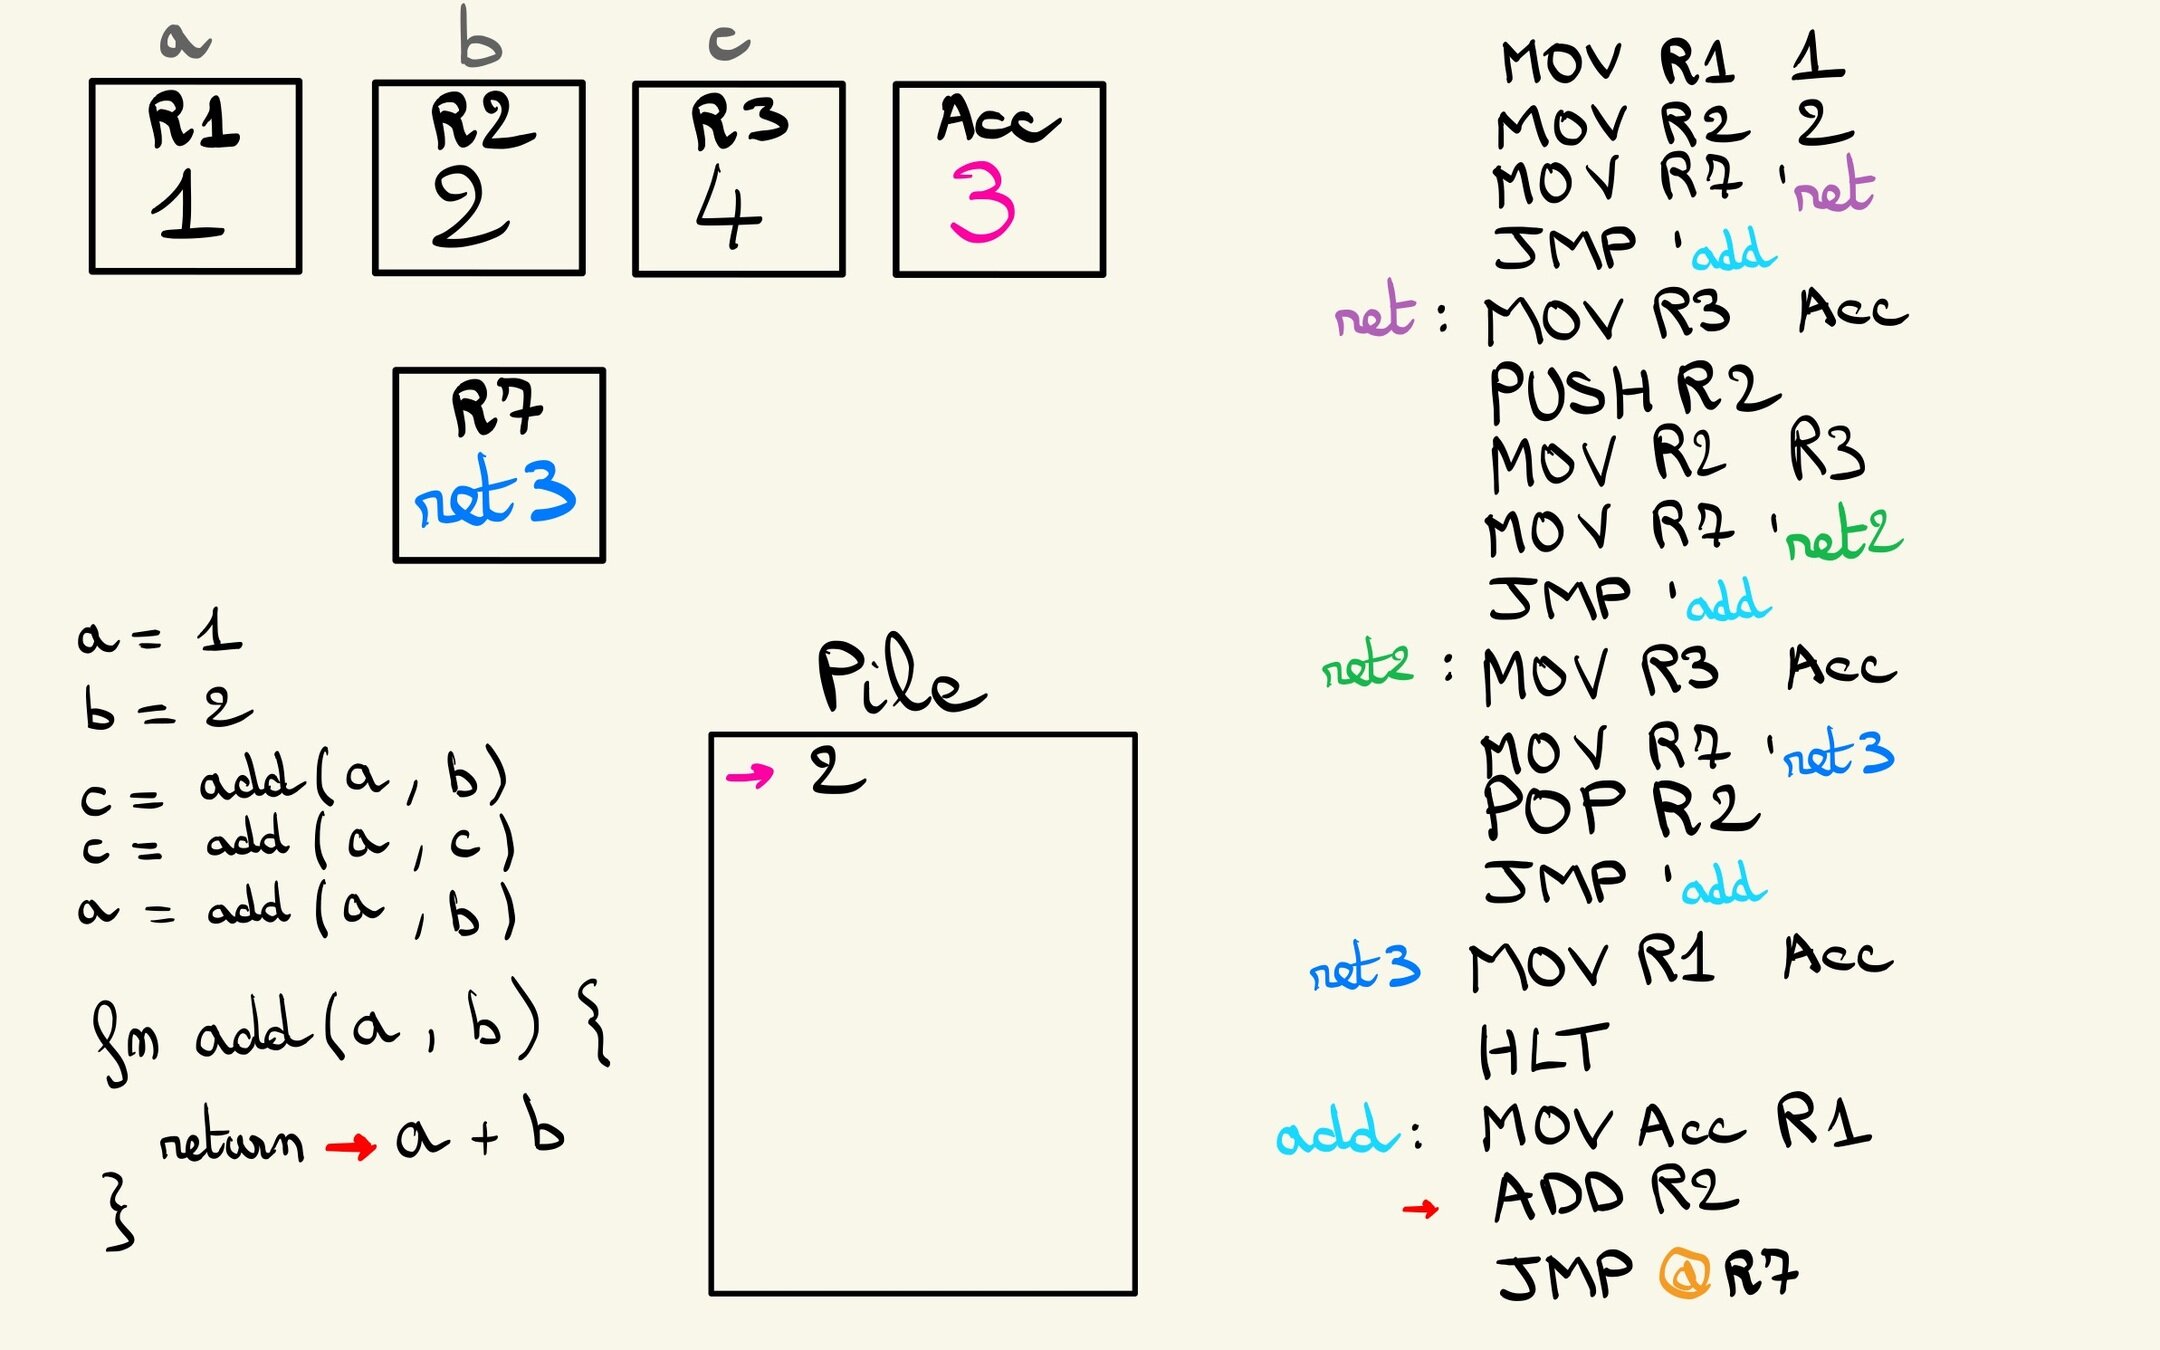 a b c
R1 R2 R3 Acc
1 2 4 3
R7
ret3
a = 1
b = 2
c = add(a, b)
c = add(a, c)
a = add(a, b)
fn add(a, b) {
return → a + b
}
Pile
→ 2
MOV R1 1
MOV R2 2
MOV R7 'ret
JMP 'add
ret: MOV R3 Acc
PUSH R2
MOV R2 R3
MOV R7 'ret2
JMP 'add
ret2: MOV R3 Acc
MOV R7 'ret3
POP R2
JMP 'add
ret3 MOV R1 Acc
HLT
add: MOV Acc R1
→ ADD R2
JMP @R7